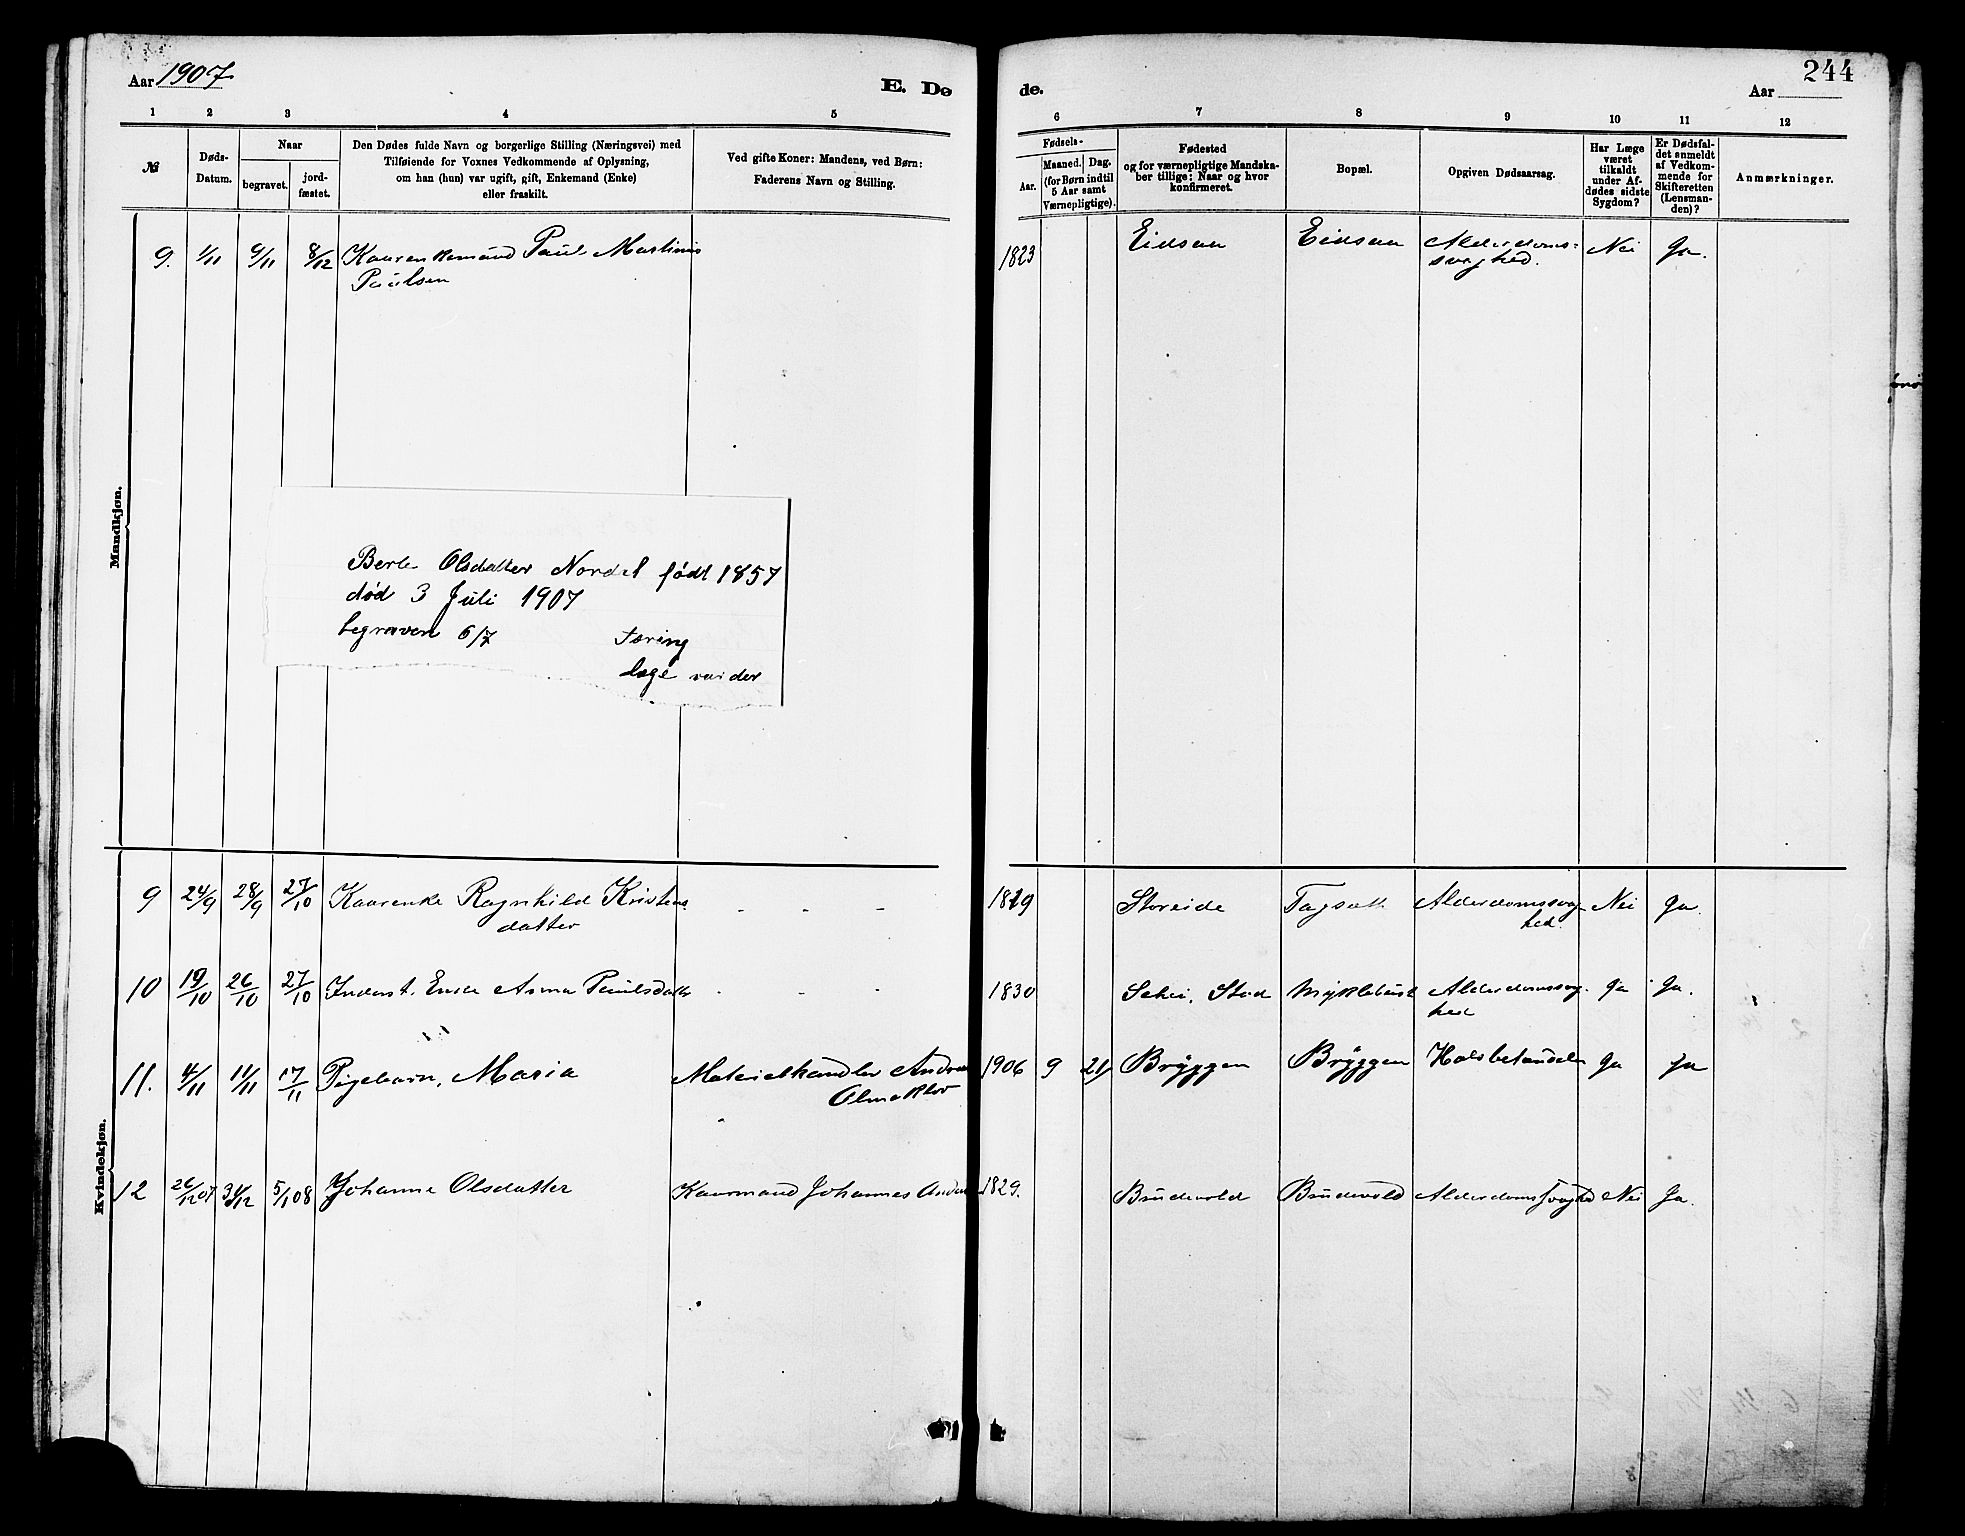 Aar 1907
E. Dø
de.
244
Aar
1 2 3 4 5
6 7 8 9 10 11 12
№
Døds-
Datum.
Naar
begravet.
jord-
fæstet.
Den Dødes fulde Navn og borgerlige Stilling (Næringsvei) med
Tilføiende for Voxnes Vedkommende af Oplysning,
om han (hun) var ugift, gift, Enkemand (Enke)
eller fraskilt.
Ved gifte Koner: Mandens, ved Børn:
Faderens Navn og Stilling.
Fødsels-
Aar.
Maaned. Dag.
(for Børn indtil
5 Aar samt
Værnepligtige).
Fødested
og for værnepligtige Mandska-
ber tillige: Naar og hvor
konfirmeret.
Bopæl.
Opgiven Dødsaarsag.
Har Læge
været
tilkaldt
under Af-
dødes sidste
Sygdom?
Er Dødsfal-
det anmeldt
af Vedkom-
mende for
Skifteretten
(Lensman-
den)?
Anmærkninger.
Mandkjøn.
9. 1/11 9/11 8/12 Kaarenkemand Paul Martinus
Paulsen
1823 Eidsaa Eidsaa Alderdoms-
svaghed. Nei Ja.
Olsdatter født 1857
død 3 Juli 1907
begraven 6/7 Tæring
læge var der
Kvindekjøn.
9 24/9 28/9 27/10 Kaarenke Ragnhild Kristens
datter - - -
1829 Storeide Alderdomssvag-
hed. Nei Ja.
10 19/10 26/10 27/10 Inderst. Enke Anna Paulsdatter - - -
1830 Stad Myklebust Alderdomssvag-
hed Ja Ja.
11. 4/11 11/11 17/11 Pigebarn, Maria Materialhandler Andreas
1906 9 21 Bryggen Bryggen Halsbetændelse Ja Ja
12 26/12 07 31/12 5/1 08 Johanne Olsdatter Kaarmand Johannes
1829. Brudevold Brudevold Alderdomssvaghed Nei Ja.